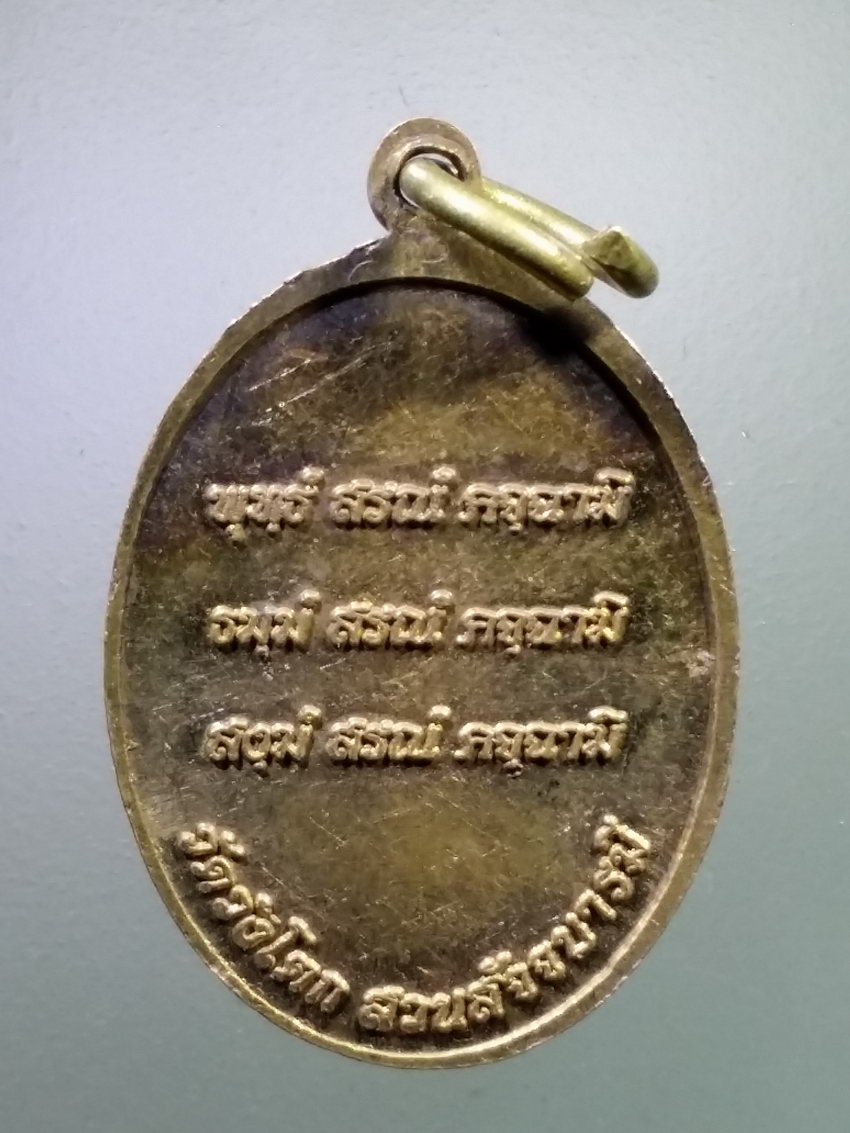 พุทฺธํ สรณํ คจฺฉามิ
ธมฺมํ สรณํ คจฺฉามิ
สงฺฆํ สรณํ คจฺฉามิ
สวนสัจจบารมี